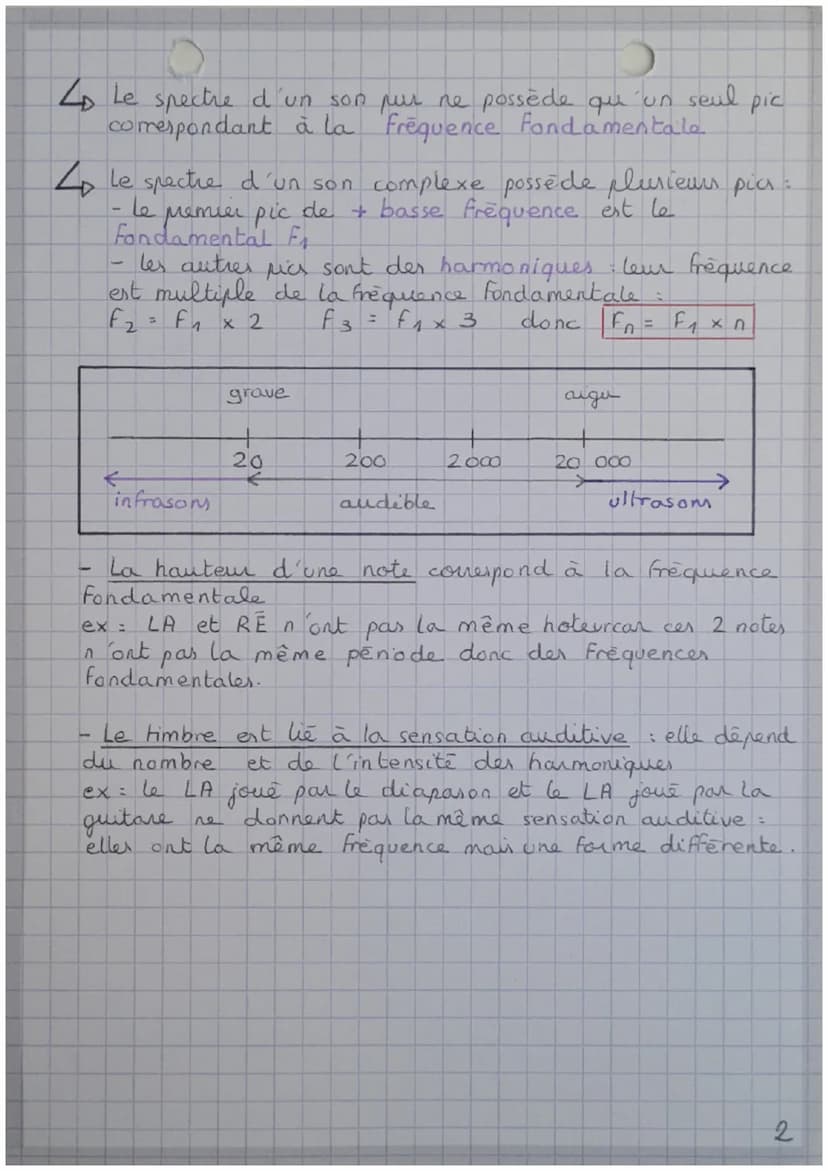 ↳ Le spectre d'un son pur ne possède qu'un seul pic
correspondant à la fréquence fondamentale
↳ Le spectre d'un son complexe possède plusieurs pics :
- le premier pic de + basse fréquence est le
fondamental F₁
- les autres pics sont des harmoniques : leur fréquence
est multiple de la fréquence fondamentale :
F₂ = F₁ x 2 F₃ = F₁ x 3 donc Fn = F₁ x n
grave aigu
20 200 2 000 20 000
infrasons audible ultrasons
- La hauteur d'une note correspond à la fréquence
fondamentale
ex : LA et RÉ n'ont pas la même hoteur car ces 2 notes
n'ont pas la même période donc des fréquences
fondamentales.
- Le timbre est lié à la sensation auditive : elle dépend
du nombre et de l'intensité des harmoniques
ex : le LA joué par le diapason et le LA joué par la
guitare ne donnent pas la même sensation auditive :
elles ont la même fréquence mais une forme différente.
2